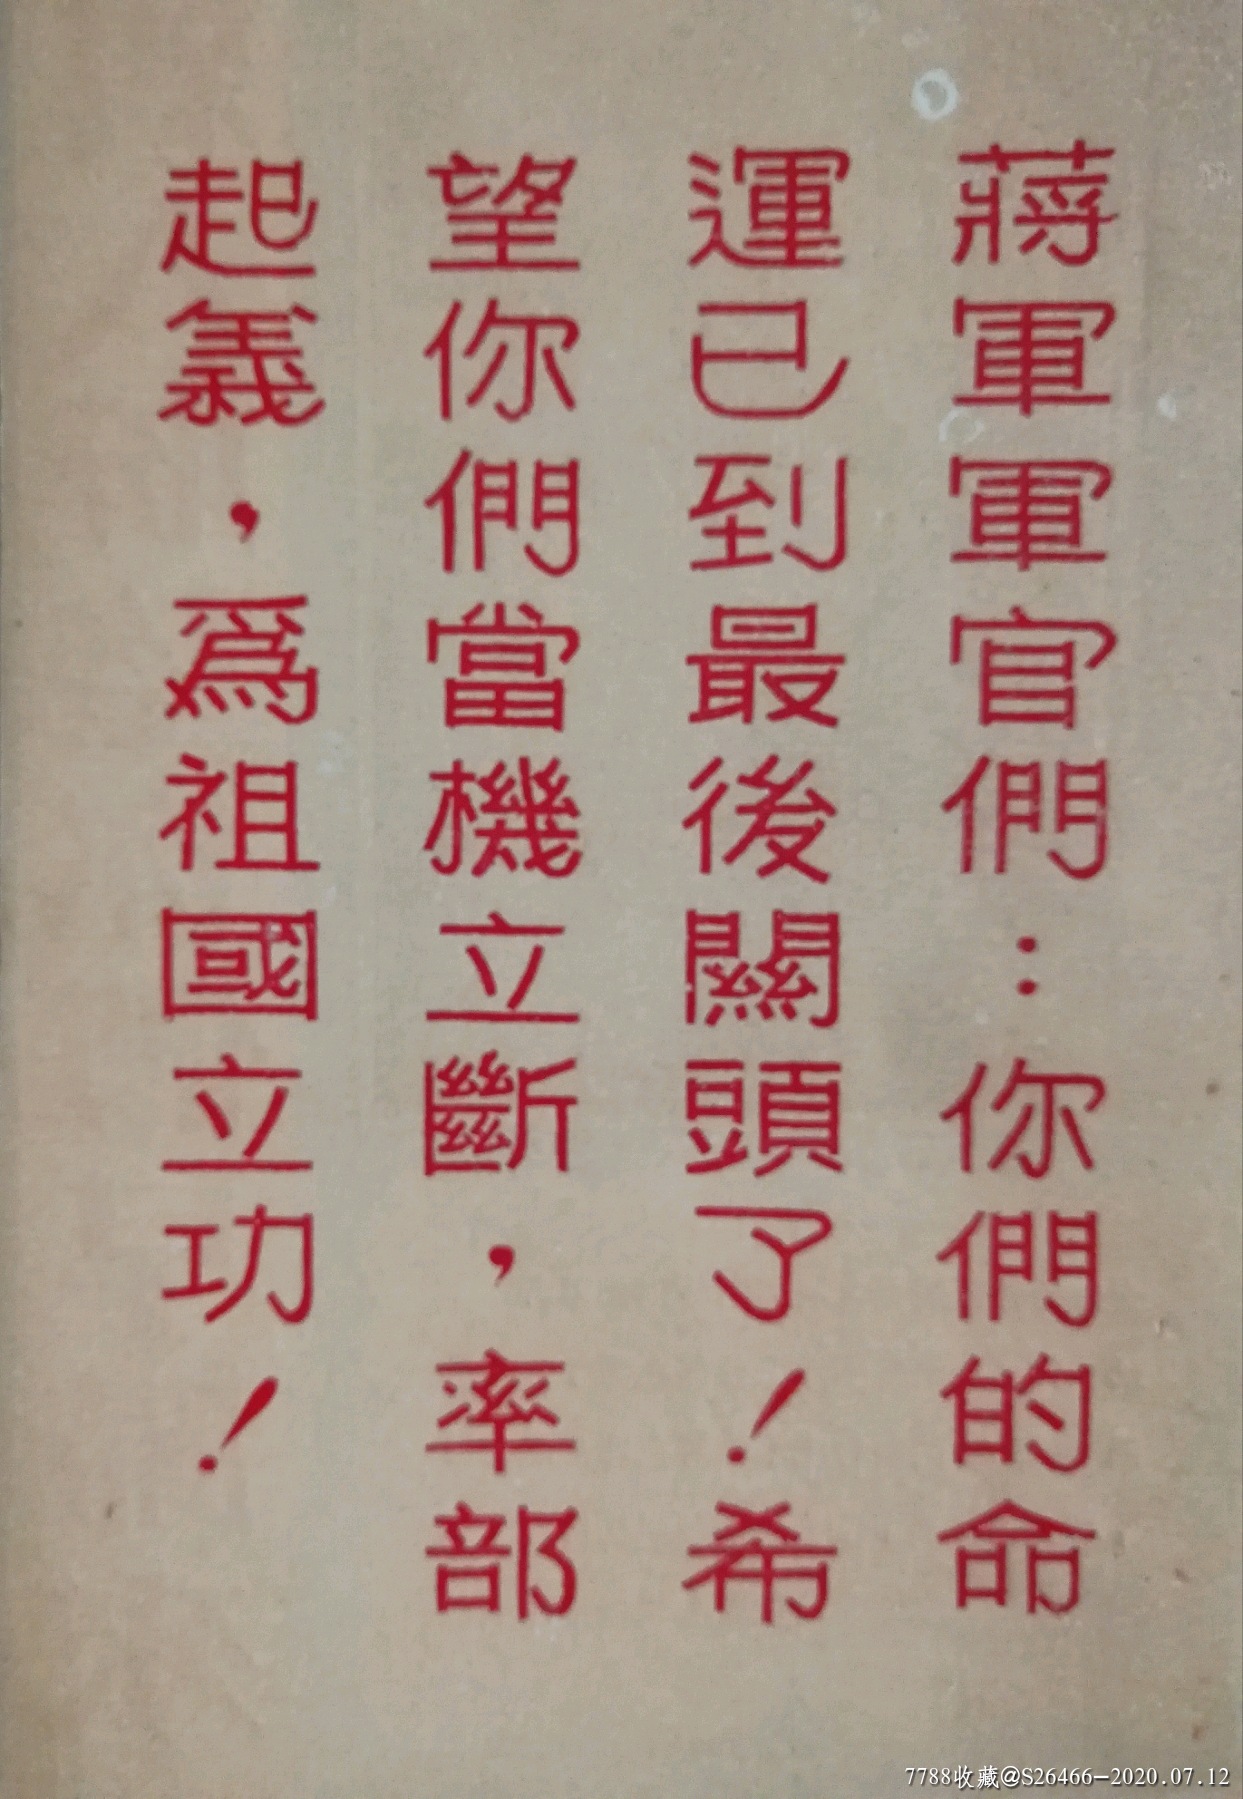 蔣軍軍官們：你們的命
運已到最後關頭了！希
望你們當機立斷，率部
起義，為祖國立功！
7788收藏@S26466-2020.07.12